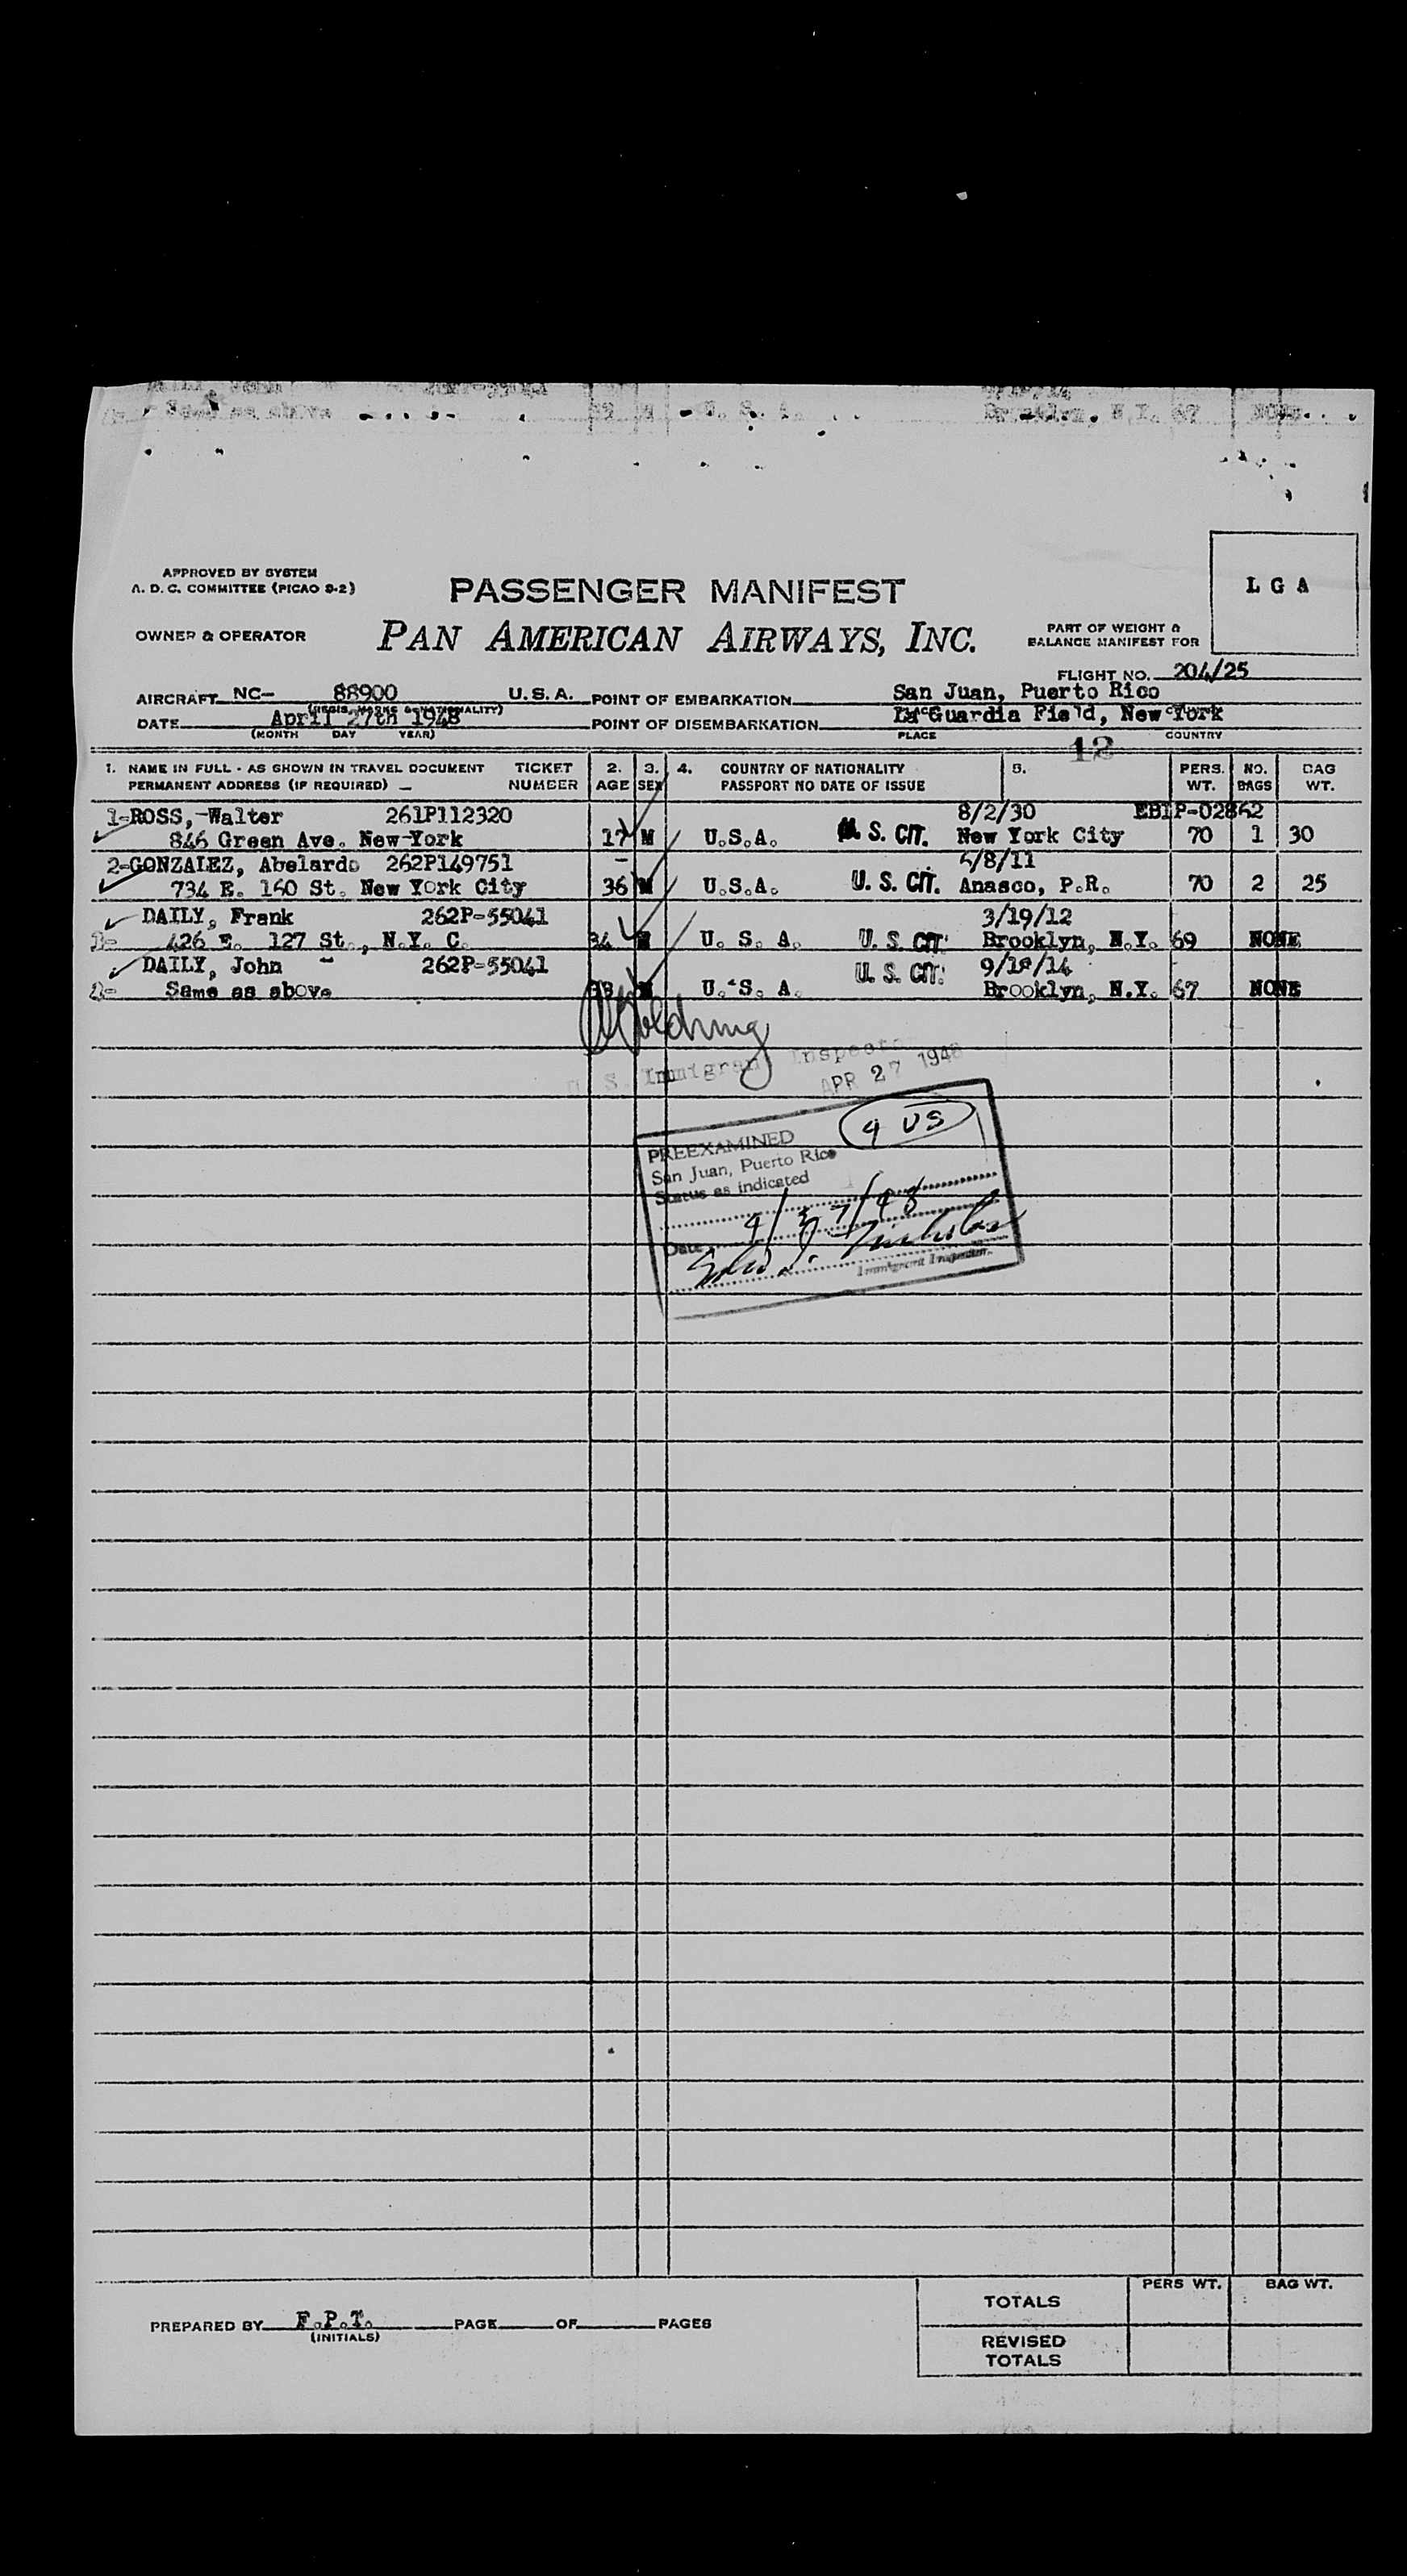 Same as above U. S. A. Brooklyn, N.Y. 67 NONE
APPROVED BY SYSTEM
A. D. C. COMMITTEE (PICAO S-2)
PASSENGER MANIFEST
L G A
OWNER & OPERATOR
PAN AMERICAN AIRWAYS, INC.
PART OF WEIGHT &
BALANCE MANIFEST FOR
FLIGHT NO. 204/25
AIRCRAFT NC- 88900 U.S.A. POINT OF EMBARKATION San Juan, Puerto Rico
(REGIS. MARKS & NATIONALITY)
DATE April 27th 1948 POINT OF DISEMBARKATION LaGuardia Field, New York
(MONTH DAY YEAR) PLACE COUNTRY
12
1. NAME IN FULL - AS SHOWN IN TRAVEL DOCUMENT TICKET 2. 3. 4. COUNTRY OF NATIONALITY 5. PERS. NO. BAG
PERMANENT ADDRESS (IF REQUIRED) NUMBER AGE SEX PASSPORT NO DATE OF ISSUE WT. BAGS WT.
1-ROSS,-Walter 261P112320 8/2/30 EBIP-02862
846 Green Ave. New York 17 M U.S.A. U. S. CIT. New York City 70 1 30
2-GONZALEZ, Abelardo 262P149751 /8/11
734 E. 160 St. New York City 36 M U.S.A. U. S. CIT. Anasco, P.R. 70 2 25
DAILY, Frank 262P-55041 3/19/12
426 E. 127 St., N.Y. C. 34 M U. S. A. U. S. CIT. Brooklyn, N.Y. 69 NONE
DAILY, John 262P-55041 U. S. CIT. 9/18/14
Same as above 33 M U. S. A. Brooklyn, N.Y. 67 NONE
U. S. Immigrant Inspector
APR 27 1948
4 US
PREEXAMINED
San Juan, Puerto Rico
Status as indicated
Date 4/27/48
Immigrant Inspector.
TOTALS PERS WT. BAG WT.
PREPARED BY F.P.T. PAGE OF PAGES
(INITIALS)
REVISED
TOTALS